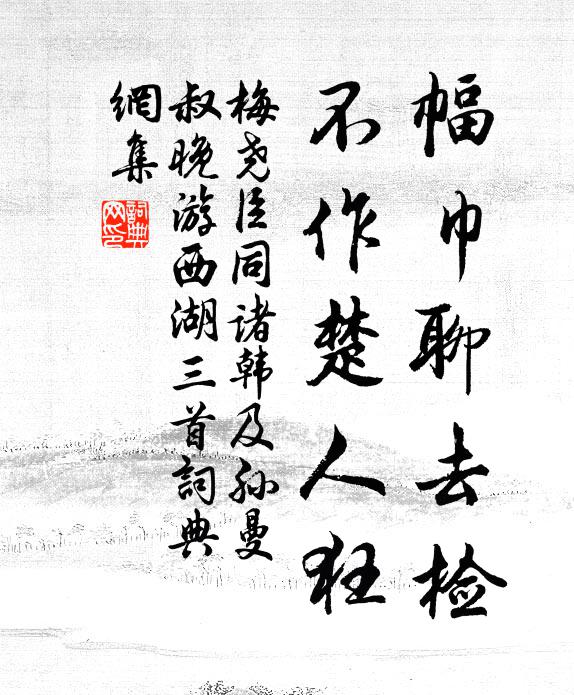 幅巾聊去检
不作楚人狂
梅尧臣同诸韩及孙曼
叔晚游西湖三首詞典
網集
詞典網印